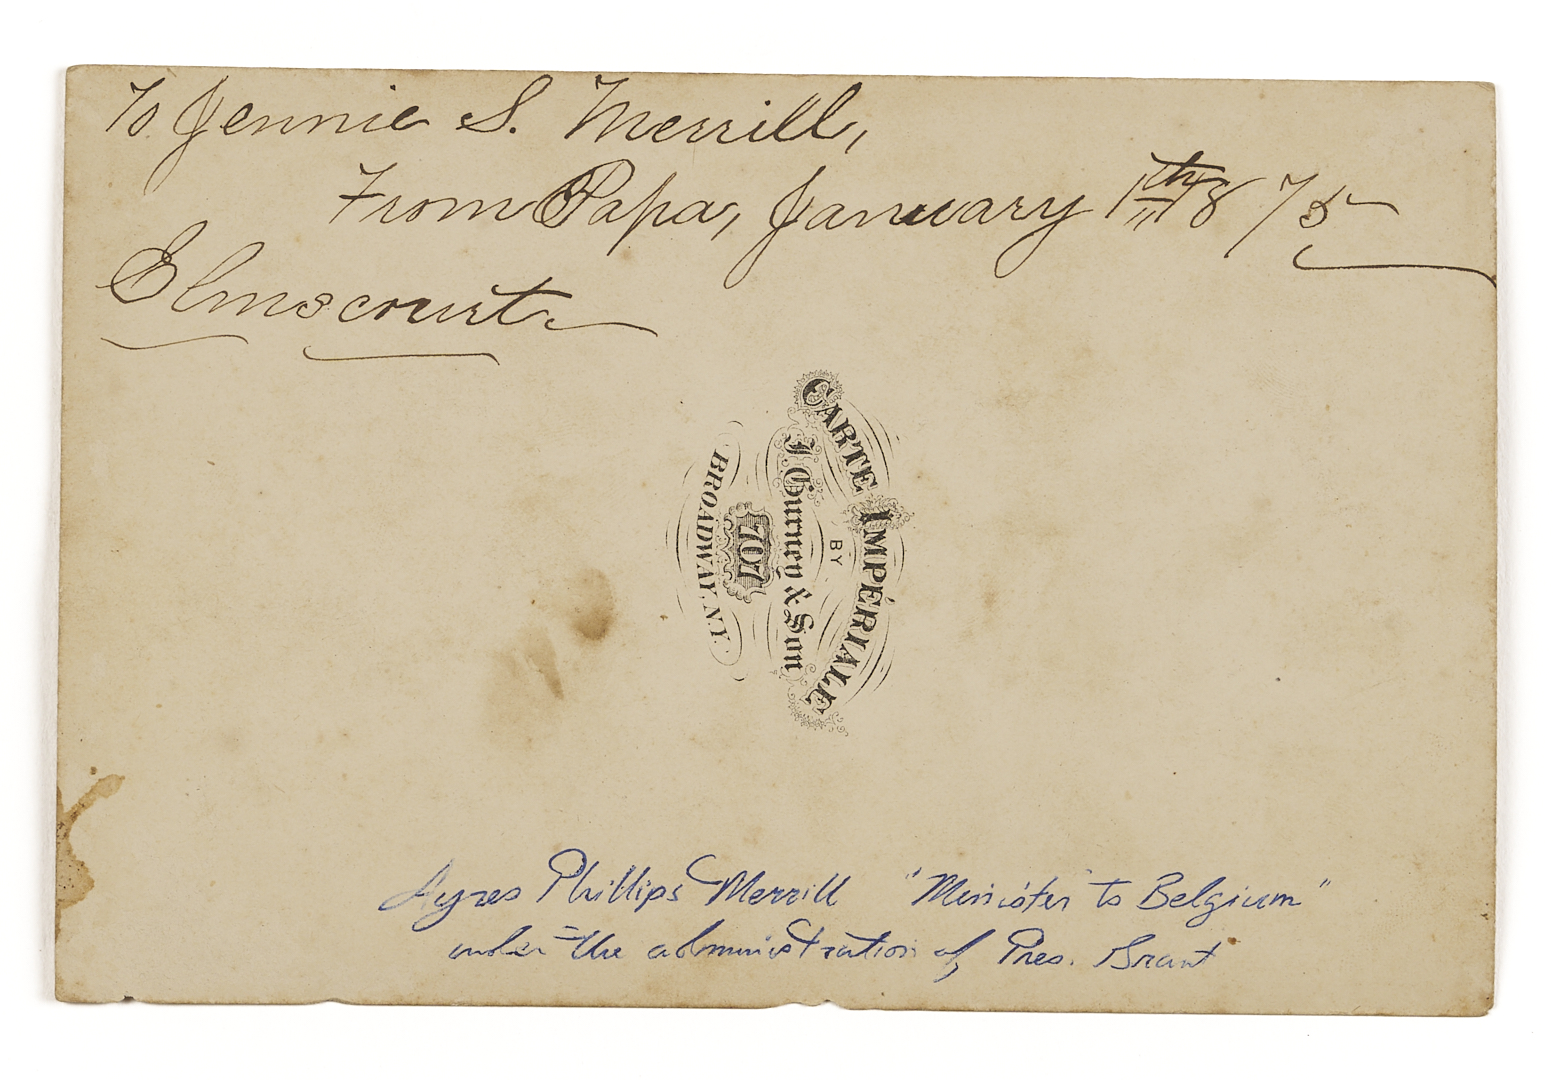 To Jennie S. Merrill,
From Papa, January 1th 1875
Elmscourt
CARTE IMPÉRIALE
BY
J. Gurney & Son
707
BROADWAY. N.Y.
Ayres Phillips Merrill "Minister to Belgium"
under the administration of Pres. Grant